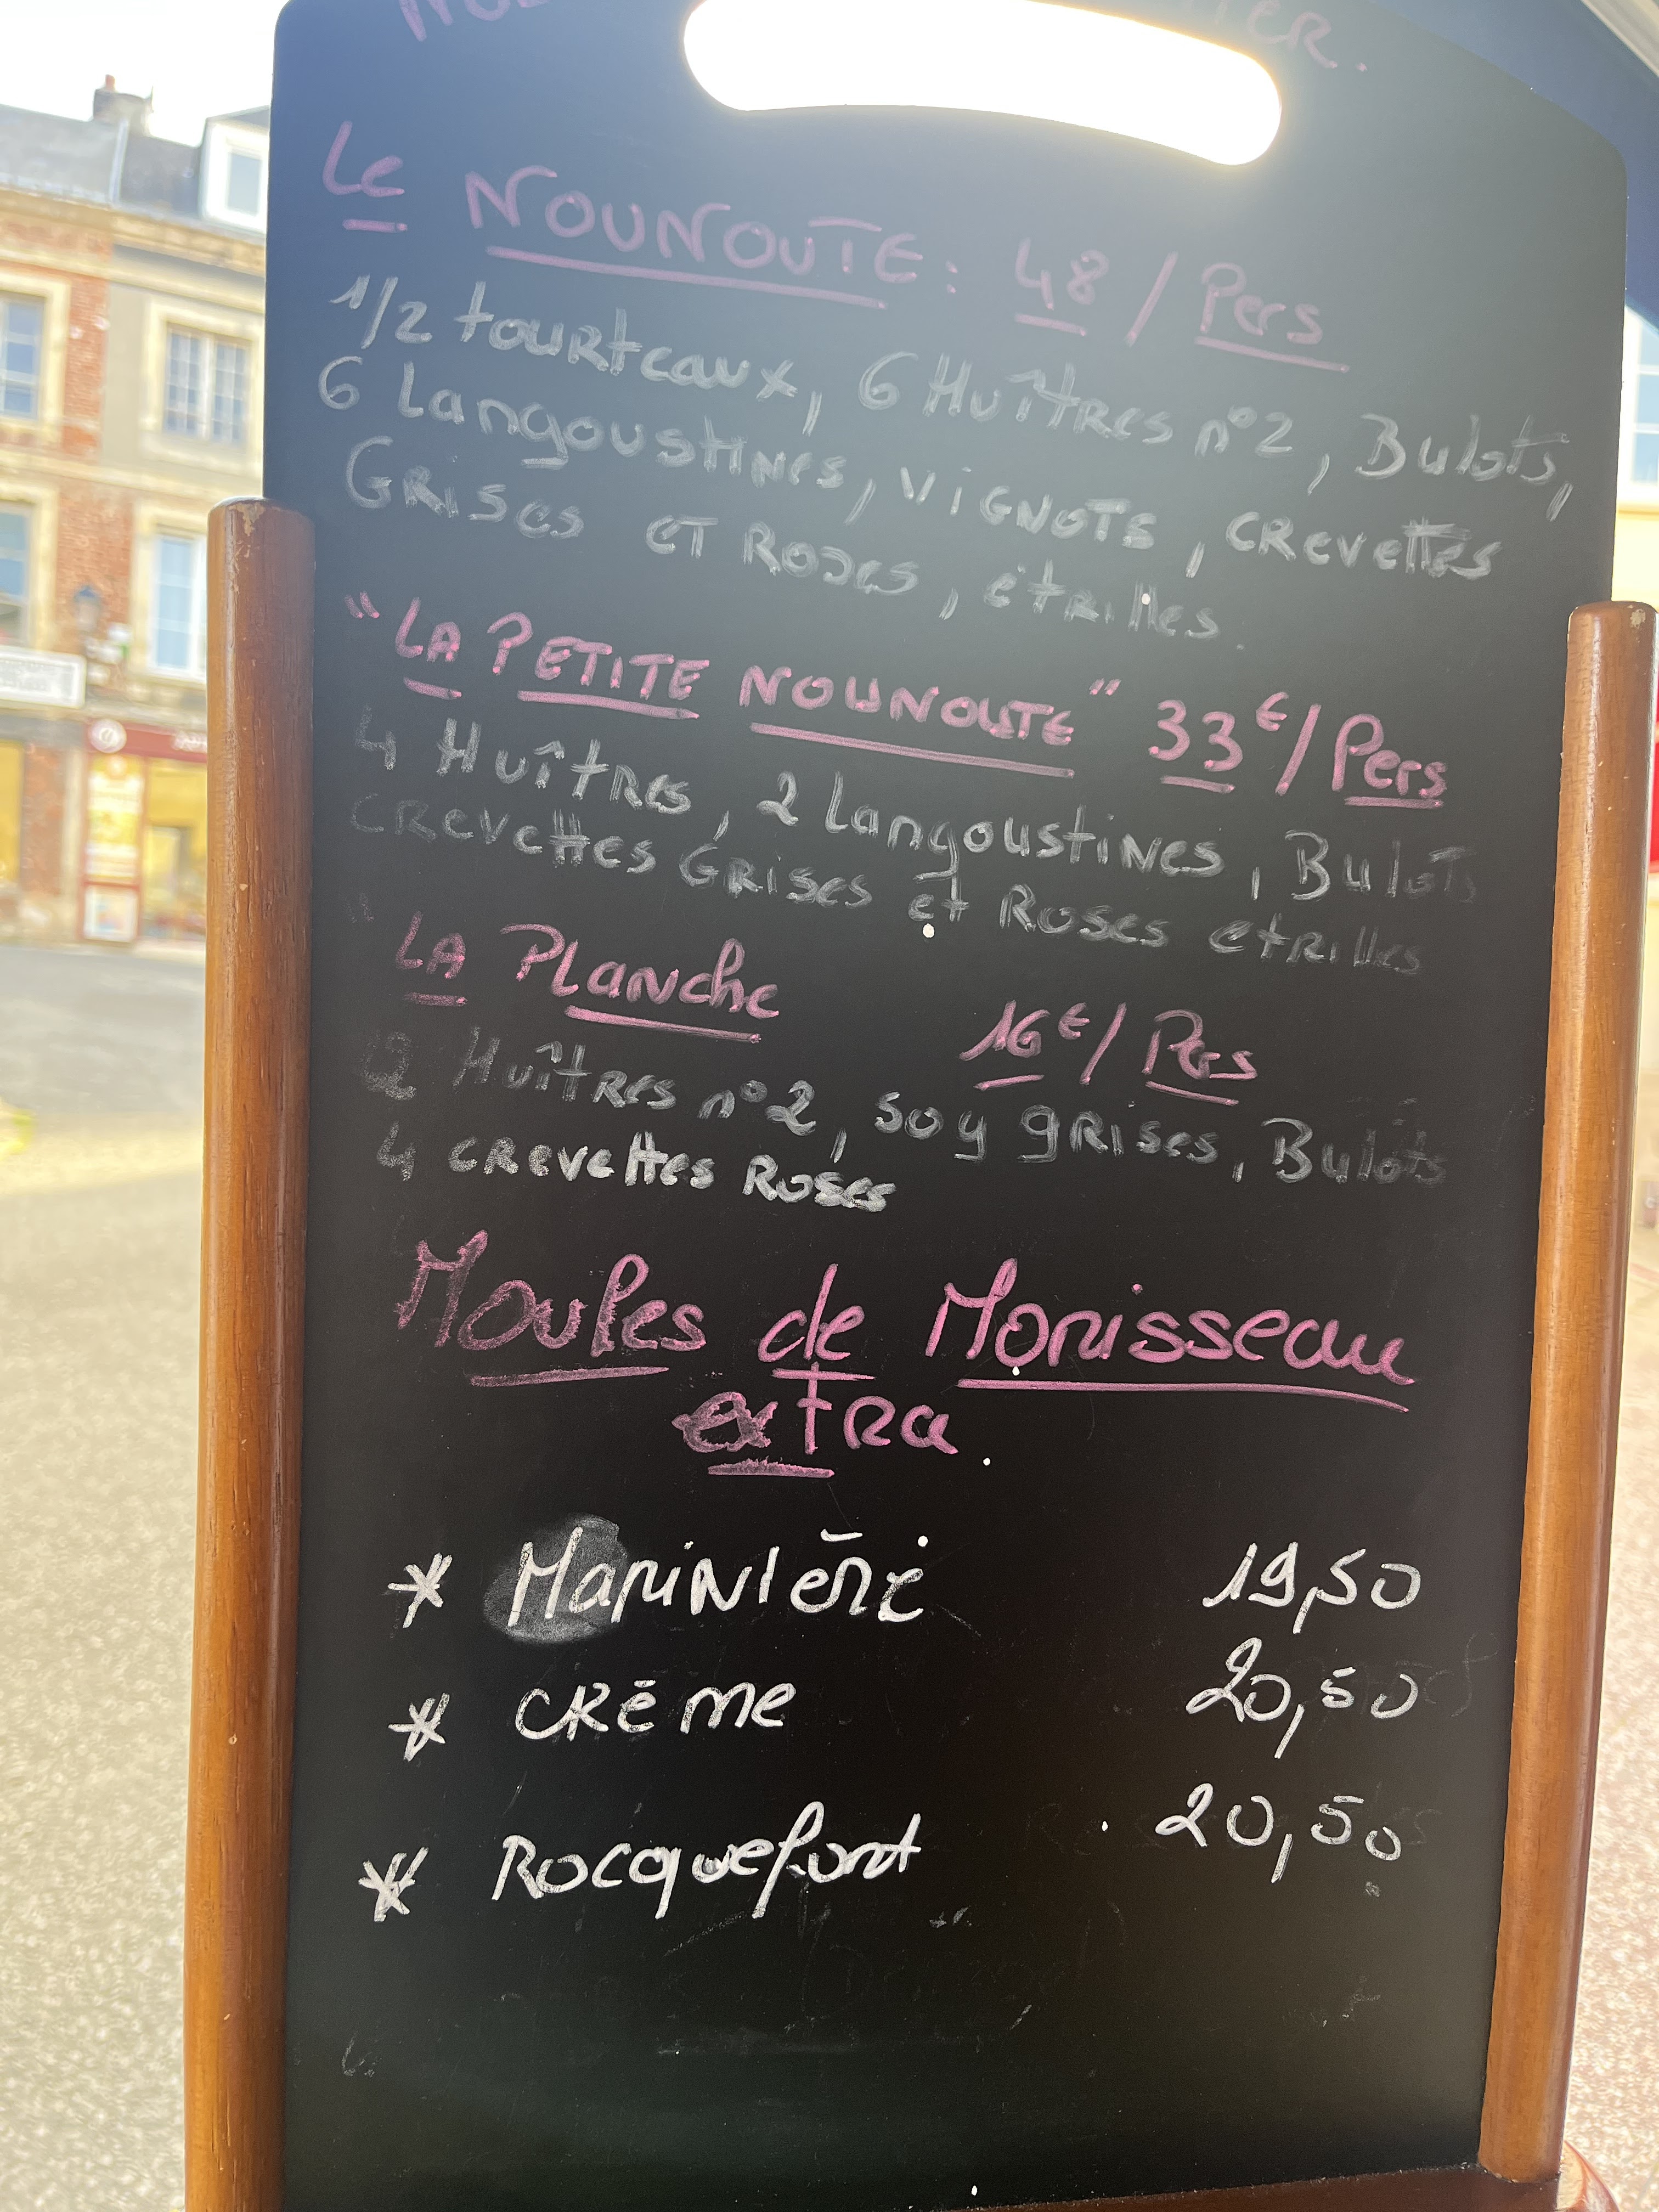 Le NOUNOUTE : 48 / Pers
1/2 tourteaux, 6 Huîtres n°2, Bulots,
6 Langoustines, VIGNOTS, CREVETTES
GRISES ET ROSES, étrilles.
"LA PETITE NOUNOUTE" 33€/Pers
4 Huîtres, 2 Langoustines, Bulots
CREVETTES GRISES et ROSES etrilles
LA PLanche
16€/ Pers
2 Huîtres n°2, 50g grises, Bulots
4 CREVETTES ROSES
Moules de Morisseau
extra.
* Marinière 19,50
* CRème 20,50
* Rocquefort 20,50